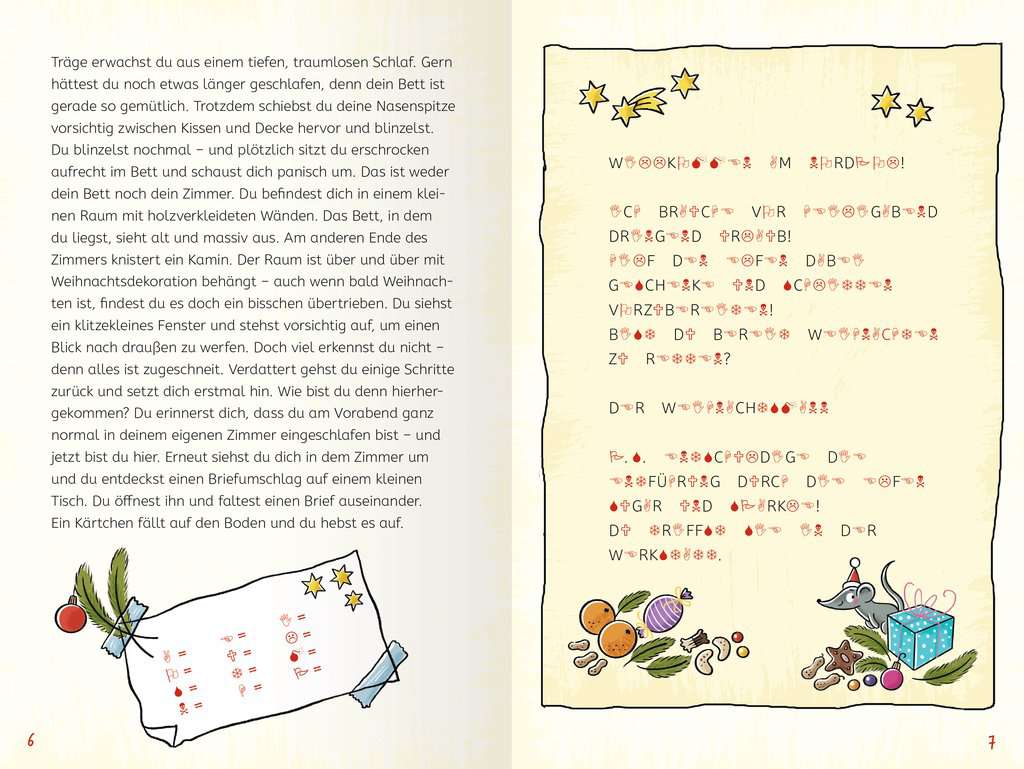 Träge erwachst du aus einem tiefen, traumlosen Schlaf. Gern
hättest du noch etwas länger geschlafen, denn dein Bett ist
gerade so gemütlich. Trotzdem schiebst du deine Nasenspitze
vorsichtig zwischen Kissen und Decke hervor und blinzelst.
Du blinzelst nochmal – und plötzlich sitzt du erschrocken
aufrecht im Bett und schaust dich panisch um. Das ist weder
dein Bett noch dein Zimmer. Du befindest dich in einem klei-
nen Raum mit holzverkleideten Wänden. Das Bett, in dem
du liegst, sieht alt und massiv aus. Am anderen Ende des
Zimmers knistert ein Kamin. Der Raum ist über und über mit
Weihnachtsdekoration behängt – auch wenn bald Weihnach-
ten ist, findest du es doch ein bisschen übertrieben. Du siehst
ein klitzekleines Fenster und stehst vorsichtig auf, um einen
Blick nach draußen zu werfen. Doch viel erkennst du nicht –
denn alles ist zugeschneit. Verdattert gehst du einige Schritte
zurück und setzt dich erstmal hin. Wie bist du denn hierher-
gekommen? Du erinnerst dich, dass du am Vorabend ganz
normal in deinem eigenen Zimmer eingeschlafen bist – und
jetzt bist du hier. Erneut siehst du dich in dem Zimmer um
und du entdeckst einen Briefumschlag auf einem kleinen
Tisch. Du öffnest ihn und faltest einen Brief auseinander.
Ein Kärtchen fällt auf den Boden und du hebst es auf.
✌ =
⚐ =
💧 =
☠ =
☜ =
🕆 =
❄ =
☟ =
✋ =
☹ =
💣 =
🏱 =
6
W✋☹☹K⚐💣💣☜☠ ✌M ☠⚐RD🏱⚐☹!
✋C☟ BR✌🕆C☟☜ V⚐R ☟☜✋☹✋G✌B☜☠D
DR✋☠G☜☠D 🕆R☹✌🕆B!
☟✋☹F D☜☠ ☜☹F☜☠ D✌B☜✋
G☜💧CH☜☠K☜ 🕆☠D 💧C☟☹✋❄❄☜☠
V⚐RZ🕆B☜R☜✋❄☜☠!
B✋💧❄ D🕆 B☜R☜✋❄ W☜✋☟☠✌C☟❄☜☠
Z🕆 R☜❄❄☜☠?
D☜R W☜✋☟☠✌CH❄💧💣✌☠☠
🏱.💧. ☜☠❄💧C☟🕆☹D✋G☜ D✋☜
☜☠❄FÜ☟R🕆☠G D🕆RC☟ D✋☜ ☜☹F☜☠
💧🕆G✌R 🕆☠D 💧🏱✌RK☹☜!
D🕆 ❄R✋FF💧❄ 💧✋☜ ✋☠ D☜R
W☜RK💧❄✌❄❄.
7